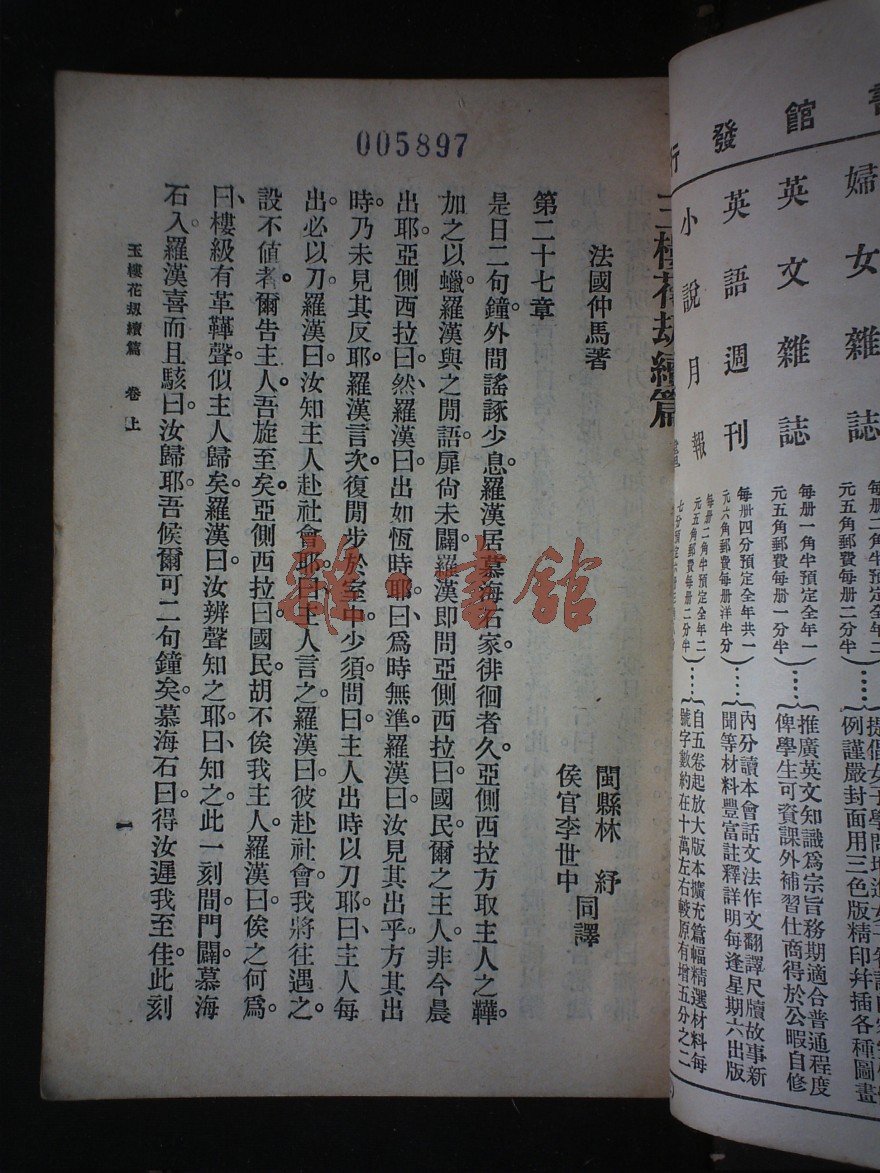 書館發行
婦女雜誌
每册二角半預定全年二
元五角郵費每册二分半
提倡女子學問
例謹嚴封面用三色版精印幷插各種圖畫
英文雜誌
每册一角半預定全年一
元五角郵費每册一分半
推廣英文知識爲宗旨務期適合普通程度
俾學生可資課外補習仕商得於公暇自修
英語週刊
每册四分預定全年共一
元六角郵費每册洋半分
內分讀本會話文法作文翻譯尺牘故事新
聞等材料豐富註釋詳明每逢星期六出版
小說月報
每册二角半預定全年二
元五角郵費每册二分半
自五卷起放大版本擴充篇幅精選材料每
號字數約在十萬左右較原有增五分之二
005897
玉樓花劫續篇
法國仲馬著
閩縣林紓
侯官李世中
同譯
第二十七章
是日二句鐘。外間謠諑少息。羅漢居慕海石家徘徊者久。亞側西拉方取主人之鞾。
加之以蠟。羅漢與之閒語。扉尙未闢。羅漢即問亞側西拉曰。國民。爾之主人。非今晨
出耶。亞側西拉曰。然。羅漢曰。出如恆時耶。曰、爲時無準。羅漢曰。汝見其出乎。方其出
時。乃未見其反耶。羅漢言次。復閒步於室中。少須問曰。主人出時以刀耶。曰、主人每
出。必以刀。羅漢曰。汝知主人赴社會耶。曰、主人言之。羅漢曰。彼赴社會。我將往遇之。
設不値者。爾告主人。吾旋至矣。亞側西拉曰。國民胡不俟我主人。羅漢曰。俟之何爲。
曰、樓級有革鞾聲。似主人歸矣。羅漢曰。汝辨聲知之耶。曰、知之。此一刻間門闢。慕海
石入。羅漢喜而且駭。曰。汝歸耶。吾候爾可二句鐘矣。慕海石曰。得汝遲我至佳。此刻
玉樓花刼續篇 卷上
一
雜·書館